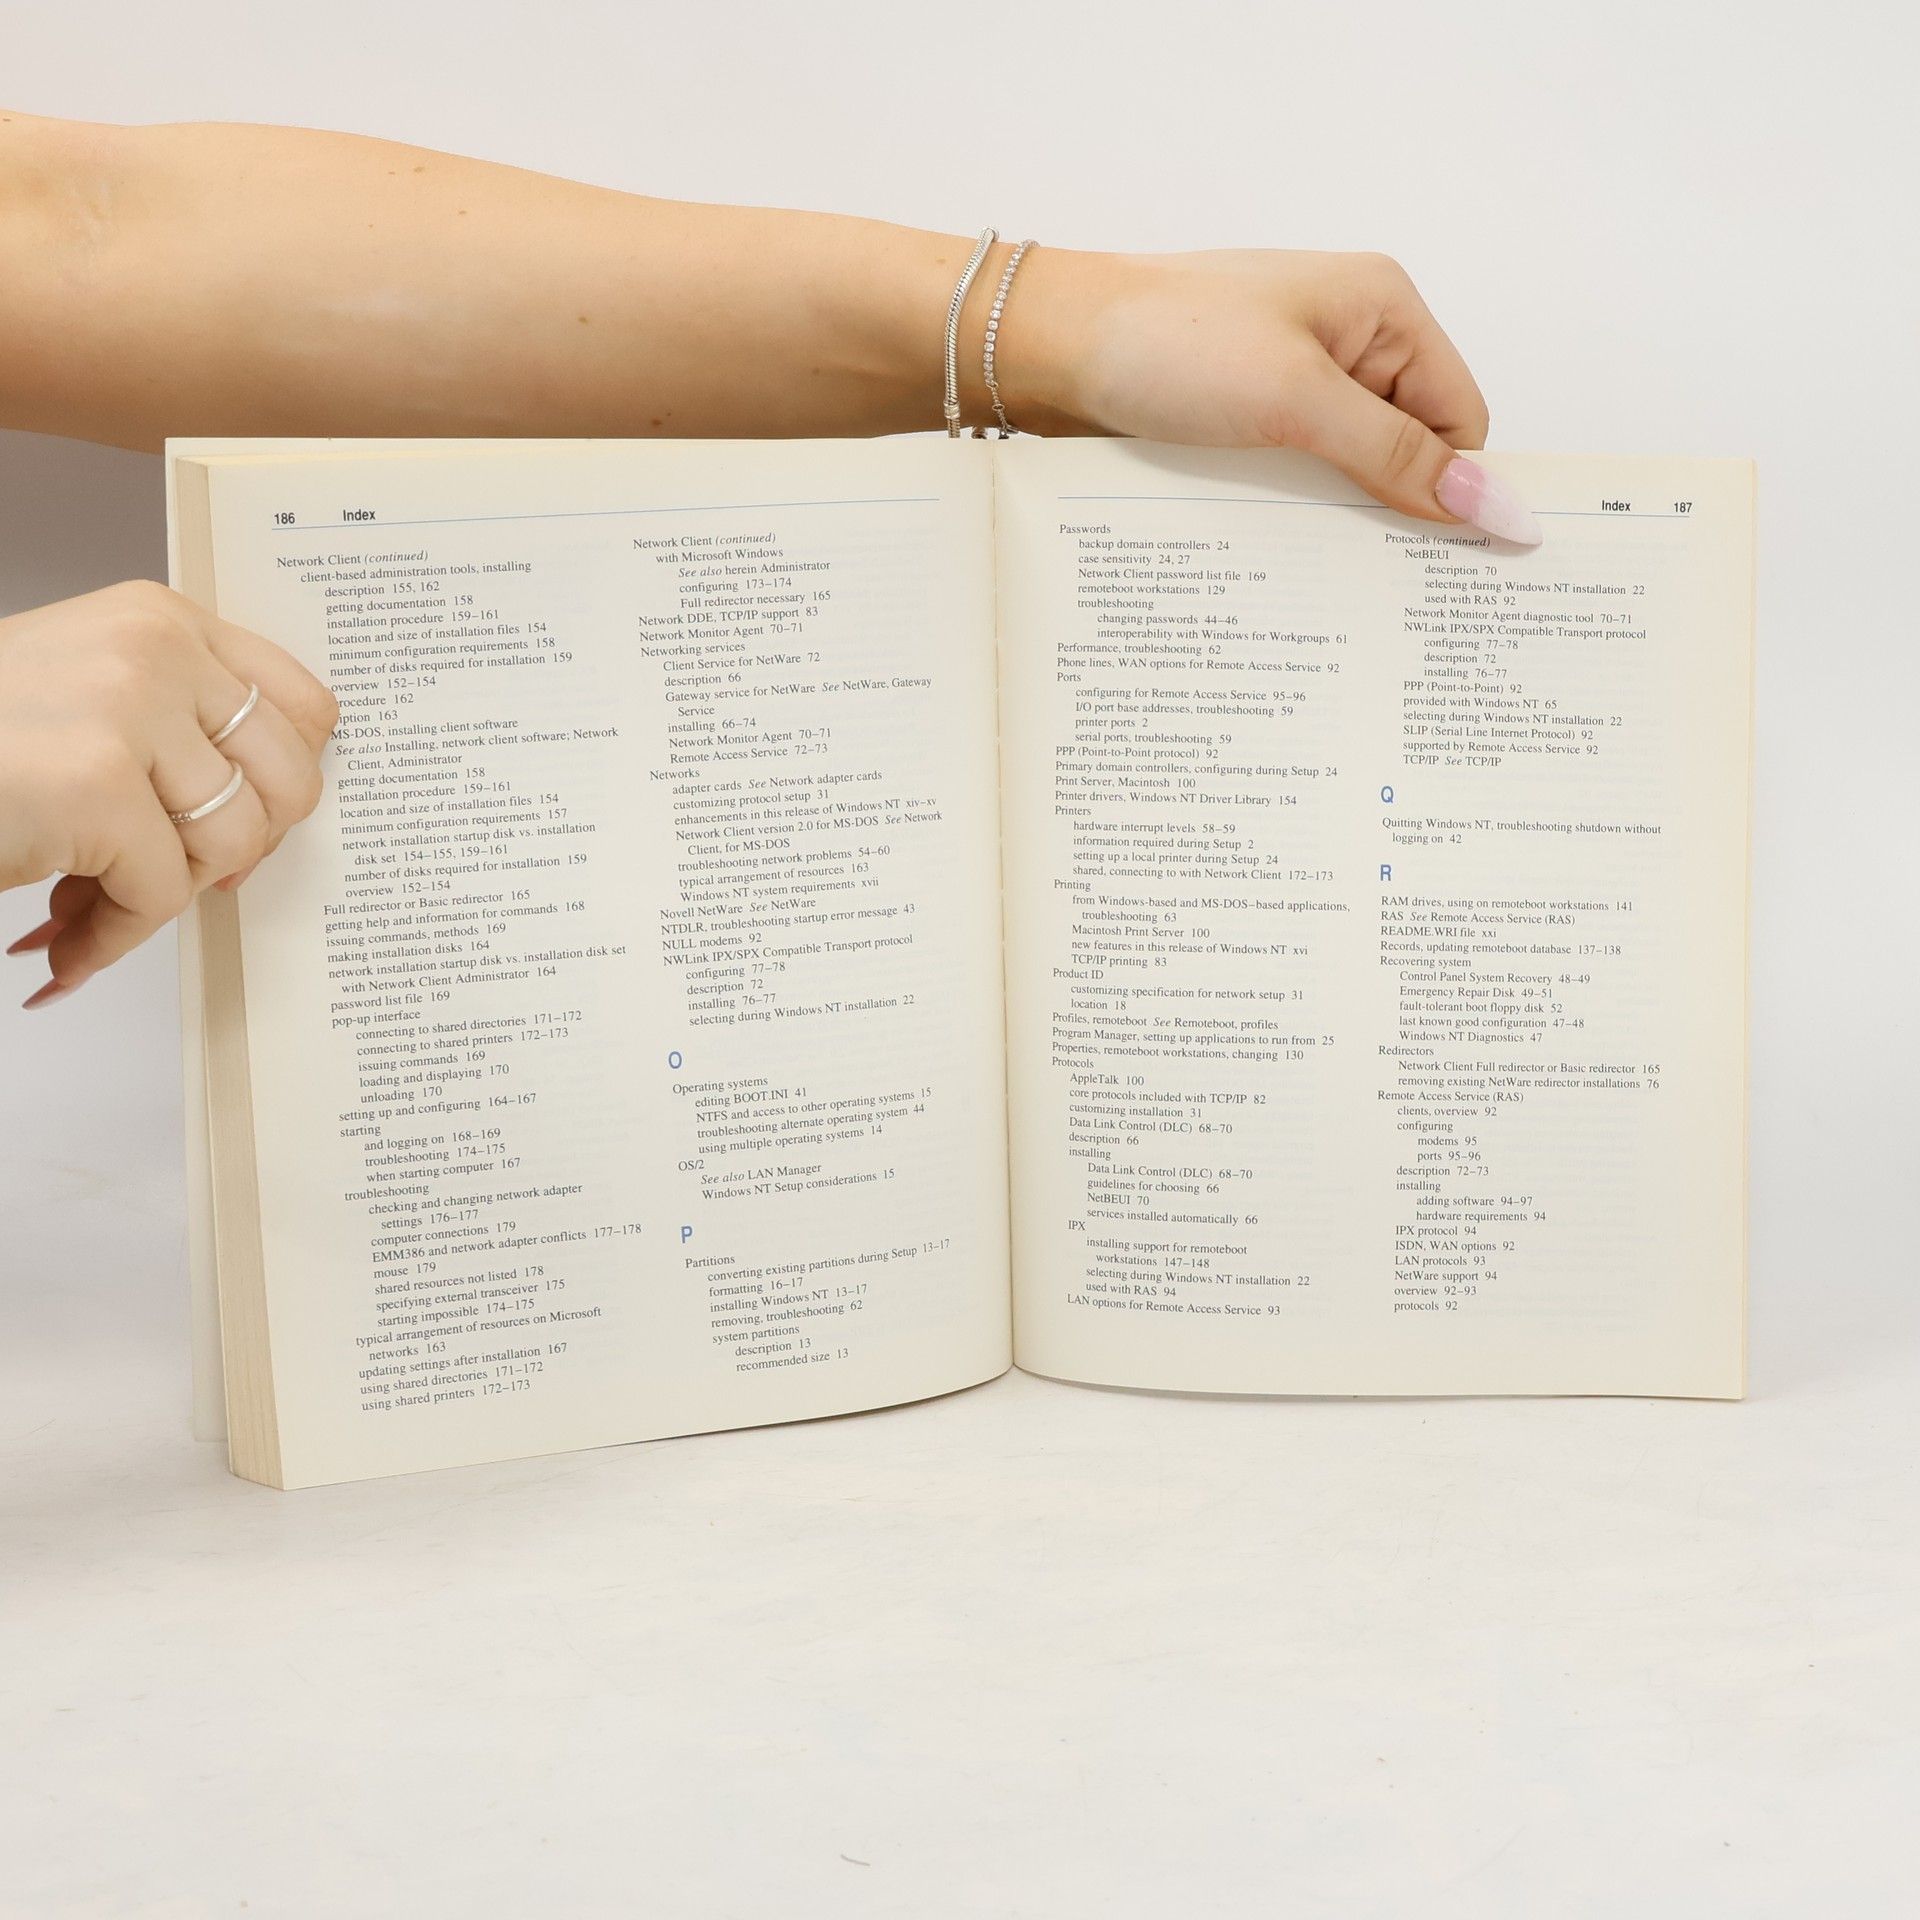 186 Index
Network Client (continued)
client-based administration tools, installing
description 155, 162
getting documentation 158
installation procedure 159–161
location and size of installation files 154
minimum configuration requirements 158
number of disks required for installation 159
overview 152–154
162
163
MS-DOS, installing client software
See also Installing, network client software; Network
Client, Administrator
getting documentation 158
installation procedure 159–161
location and size of installation files 154
minimum configuration requirements 157
network installation startup disk vs. installation
disk set 154–155, 159–161
number of disks required for installation 159
overview 152–154
Full redirector or Basic redirector 165
getting help and information for commands 168
issuing commands, methods 169
making installation disks 164
network installation startup disk vs. installation disk set
with Network Client Administrator 164
password list file 169
pop-up interface
connecting to shared directories 171–172
connecting to shared printers 172–173
issuing commands 169
loading and displaying 170
unloading 170
setting up and configuring 164–167
starting
and logging on 168–169
troubleshooting 174–175
when starting computer 167
troubleshooting
checking and changing network adapter
settings 176–177
computer connections 179
EMM386 and network adapter conflicts 177–178
mouse 179
shared resources not listed 178
specifying external transceiver 175
starting impossible 174–175
typical arrangement of resources on Microsoft
networks 163
updating settings after installation 167
using shared directories 171–172
using shared printers 172–173
Network Client (continued)
with Microsoft Windows
See also herein Administrator
configuring 173–174
Full redirector necessary 165
Network DDE, TCP/IP support 83
Network Monitor Agent 70–71
Networking services
Client Service for NetWare 72
description 66
Gateway service for NetWare See NetWare, Gateway
Service
installing 66–74
Network Monitor Agent 70–71
Remote Access Service 72–73
Networks
adapter cards See Network adapter cards
customizing protocol setup 31
enhancements in this release of Windows NT xiv–xv
Network Client version 2.0 for MS-DOS See Network
Client, for MS-DOS
troubleshooting network problems 54–60
typical arrangement of resources 163
Windows NT system requirements xvii
Novell NetWare See NetWare
NTDLR, troubleshooting startup error message 43
NULL modems 92
NWLink IPX/SPX Compatible Transport protocol
configuring 77–78
description 72
installing 76–77
selecting during Windows NT installation 22
O
Operating systems
editing BOOT.INI 41
NTFS and access to other operating systems 15
troubleshooting alternate operating system 44
using multiple operating systems 14
OS/2
See also LAN Manager
Windows NT Setup considerations 15
P
Partitions
converting existing partitions during Setup 13–17
formatting 16–17
installing Windows NT 13–17
removing, troubleshooting 62
system partitions
description 13
recommended size 13
Index 187
Passwords
backup domain controllers 24
case sensitivity 24, 27
Network Client password list file 169
remoteboot workstations 129
troubleshooting
changing passwords 44–46
interoperability with Windows for Workgroups 61
Performance, troubleshooting 62
Phone lines, WAN options for Remote Access Service 92
Ports
configuring for Remote Access Service 95–96
I/O port base addresses, troubleshooting 59
printer ports 2
serial ports, troubleshooting 59
PPP (Point-to-Point protocol) 92
Primary domain controllers, configuring during Setup 24
Print Server, Macintosh 100
Printer drivers, Windows NT Driver Library 154
Printers
hardware interrupt levels 58–59
information required during Setup 2
setting up a local printer during Setup 24
shared, connecting to with Network Client 172–173
Printing
from Windows-based and MS-DOS–based applications,
troubleshooting 63
Macintosh Print Server 100
new features in this release of Windows NT xvi
TCP/IP printing 83
Product ID
customizing specification for network setup 31
location 18
Profiles, remoteboot See Remoteboot, profiles
Program Manager, setting up applications to run from 25
Properties, remoteboot workstations, changing 130
Protocols
AppleTalk 100
core protocols included with TCP/IP 82
customizing installation 31
Data Link Control (DLC) 68–70
description 66
installing
Data Link Control (DLC) 68–70
guidelines for choosing 66
NetBEUI 70
services installed automatically 66
IPX
installing support for remoteboot
workstations 147–148
selecting during Windows NT installation 22
used with RAS 94
LAN options for Remote Access Service 93
Protocols (continued)
NetBEUI
description 70
selecting during Windows NT installation 22
used with RAS 92
Network Monitor Agent diagnostic tool 70–71
NWLink IPX/SPX Compatible Transport protocol
configuring 77–78
description 72
installing 76–77
PPP (Point-to-Point) 92
provided with Windows NT 65
selecting during Windows NT installation 22
SLIP (Serial Line Internet Protocol) 92
supported by Remote Access Service 92
TCP/IP See TCP/IP
Q
Quitting Windows NT, troubleshooting shutdown without
logging on 42
R
RAM drives, using on remoteboot workstations 141
RAS See Remote Access Service (RAS)
README.WRI file xxi
Records, updating remoteboot database 137–138
Recovering system
Control Panel System Recovery 48–49
Emergency Repair Disk 49–51
fault-tolerant boot floppy disk 52
last known good configuration 47–48
Windows NT Diagnostics 47
Redirectors
Network Client Full redirector or Basic redirector 165
removing existing NetWare redirector installations 76
Remote Access Service (RAS)
clients, overview 92
configuring
modems 95
ports 95–96
description 72–73
installing
adding software 94–97
hardware requirements 94
IPX protocol 94
ISDN, WAN options 92
LAN protocols 93
NetWare support 94
overview 92–93
protocols 92